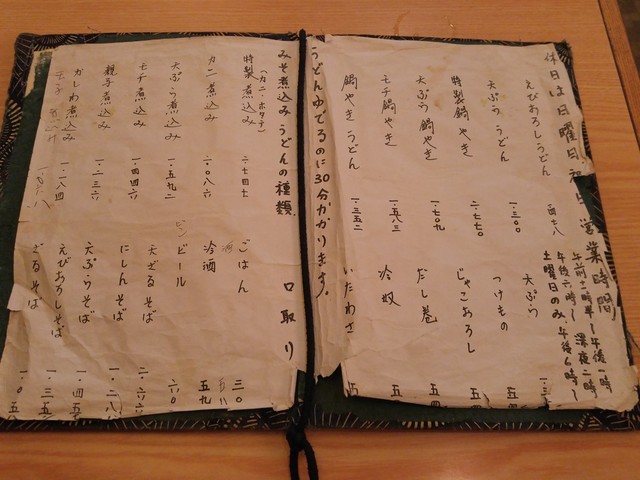 休日は日曜日 祝日 営業時間
午前十一時半～午後一時
午後六時～深夜二時
土曜日のみ、午後六時～
えびおろしうどん
天ぷらうどん 一・三〇〇
特製鍋やき 二・七七〇
天ぷら鍋やき 一・七〇九
モチ鍋やき 一・五八三
鍋やきうどん 一・三五二
天ぷら
つけもの
じゃこおろし
だし巻
冷奴
いたわさ
うどんゆでるのに30分かかります。
みそ煮込みうどんの種類
特製煮込み
(カニ・ホタテ)
カニ煮込み 二・〇八六
天ぷら煮込み 一・五九二
モチ煮込み 一・四四六
親子煮込み 一・二三六
かしわ煮込み 一・一八四
口取り
ごはん 三〇
冷酒 五九
ビンビール 六〇
天ざるそば
にしんそば
天ぷらそば
えびおろしそば
ざるそば